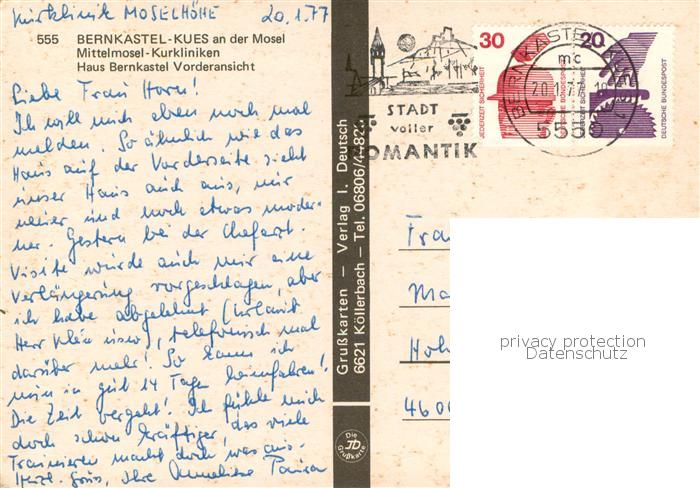 Kurklinik MOSELHÖHE 20.1.77
555 BERNKASTEL-KUES an der Mosel
Mittelmosel-Kurkliniken
Haus Bernkastel Vorderansicht
Liebe Frau Horn!
Ich will mich eben noch mal
melden. So ähnlich wie das
Haus auf der Vorderseite sieht
unser Haus auch aus, nur
neuer und noch etwas moder-
ner. Gestern bei der Chefarzt.
Visite wurde auch mir eine
Verlängerung vorgeschlagen, aber
ich habe abgelehnt (Urlaub
Herr usw), telefonisch mal
darüber mehr! So kann ich
nun in gut 14 Tagen heimfahren!
Die Zeit vergeht! Ich fühle mich
doch schon kräftiger, das viele
Trainieren macht doch was aus.
Herzl. Gruss, Ihre Anneliese
Grußkarten — Verlag I. Deutsch
6621 Köllerbach — Tel. 06806/44824
Die
JD
Grußkarte
STADT
voller
ROMANTIK
BERNKASTEL-KUES 1
mc
20.1.77
5550
30
JEDERZEIT SICHERHEIT
DEUTSCHE BUNDESPOST
20
JEDERZEIT SICHERHEIT
DEUTSCHE BUNDESPOST
Frau
Ma
Hoh
4600
privacy protection
Datenschutz